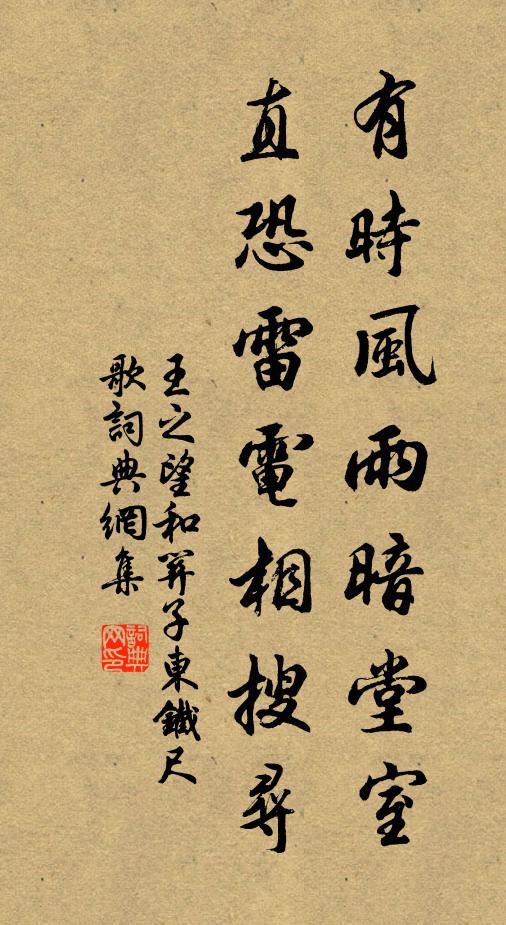 有時風雨暗堂室
直恐雷電相搜尋
王之望和關子東鐵尺
歌詞典網集
詞典
网印